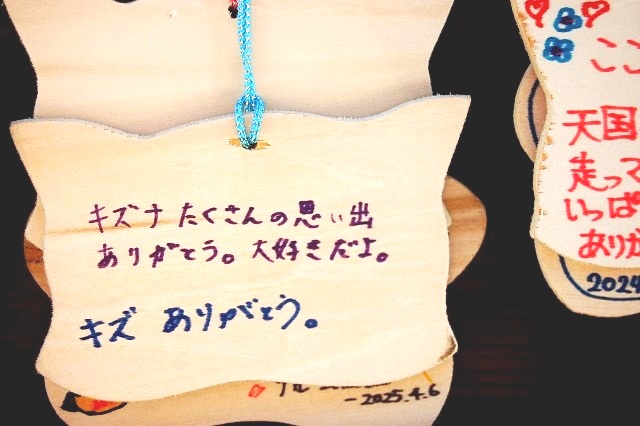 キズナ たくさんの思い出
ありがとう。大好きだよ。
キズ ありがとう。
-2025.4.6
ここ
天国
走って
いっぱ
ありが
2024